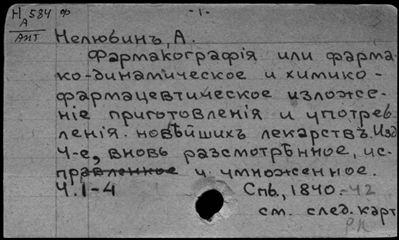 Н 584 ф -1-
А
АПТ
Нелюбинъ, А.
Фармакографія или фарма-
ко-динамическое и химико-
фармацевтическое изложе-
ніе приготовленія и употреб-
ленія новѣйшихъ лекарствъ. Изд.
4-е, вновь разсмотрѣнное, ис-
правленное и умноженное.
Ч. 1-4 Спб., 1840.-42
см. след. карт